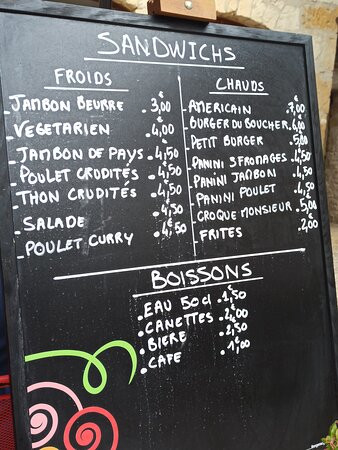 SANDWICHS
FROIDS
_JAMBON BEURRE .3,00€
_VEGETARIEN .4,00€
_JAMBON DE PAYS .4,50
_POULET CRUDITÉS .4,50
_THON CRUDITÉS .4,50
_SALADE .4,50
_POULET CURRY .4€50
CHAUDS
_AMERICAIN .7,00€
_BURGER DU BOUCHER .6,00€
_PETIT BURGER .5,00
_PANINI 3 FROMAGES .4,50€
_PANINI JAMBON .4,50
_PANINI POULET .4,50
_CROQUE MONSIEUR .5,00
_FRITES .2,00€
BOISSONS
.EAU 50cl .1,50€
.CANETTES .2,00€
.BIERE .2,50
.CAFE .1€00